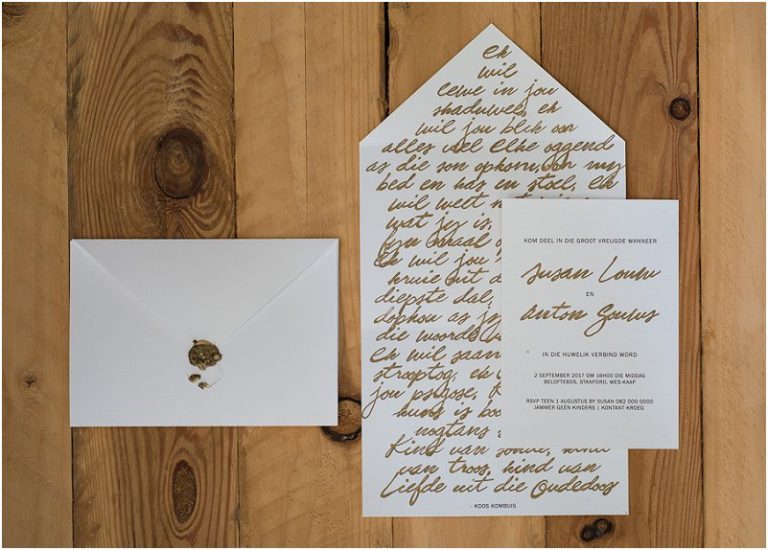 Ek
wil
lewe in jou
skaduwee, ek
wil jou blik oor
alles voel elke oggend
as die son opkom, oor my
bed en kas en stoel, Ek
wil weet
wat jy is,
fyn
Ek wil jou
kruie uit d
diepste dal,
dophou as jy
die woorde
Ek wil saam
strooptog, ek
jou
kluis is
nogtans
Kind van sonde, kind
van troos, kind van
Liefde uit die Oudedoos
- KOOS KOMBUIS
KOM DEEL IN DIE GROOT VREUGDE WANNEER
Susan Louw
EN
Anton Gouws
IN DIE HUWELIK VERBIND WORD
2 SEPTEMBER 2017 OM 16H00 DIE MIDDAG
BELOFTEBOS, STANFORD, WES-KAAP
RSVP TEEN 1 AUGUSTUS BY SUSAN 082 000 0000
JAMMER GEEN KINDERS | KONTANT KROEG